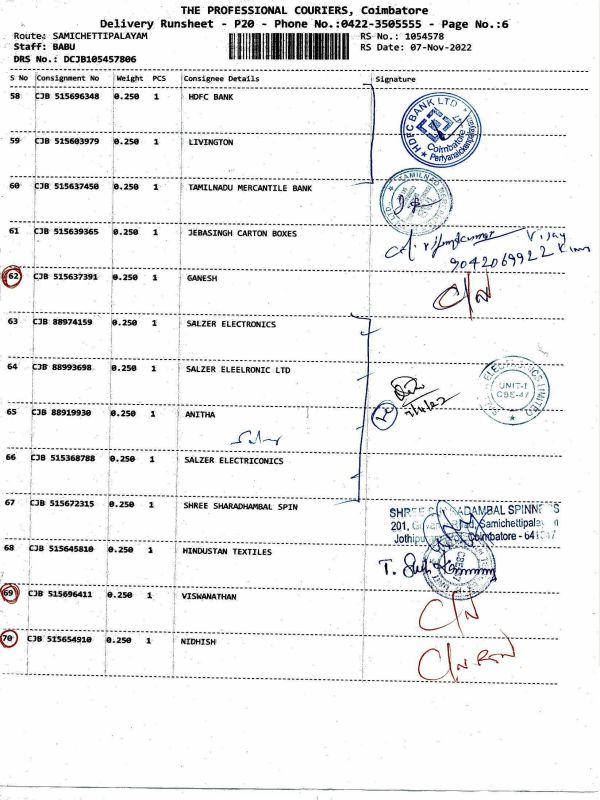 THE PROFESSIONAL COURIERS, Coimbatore
Delivery Runsheet - P20 - Phone No.:0422-3505555 - Page No.:6
Route: SAMICHETTIPALAYAM RS No.: 1054578
Staff: BABU RS Date: 07-Nov-2022
DRS No.: DCJB105457806
S No Consignment No Weight PCS Consignee Details Signature
58 CJB 515696348 0.250 1 HDFC BANK
HDFC BANK LTD
Coimbatore
59 CJB 515603979 0.250 1 LIVINGTON
60 CJB 515637450 0.250 1 TAMILNADU MERCANTILE BANK
61 CJB 515639365 0.250 1 JEBASINGH CARTON BOXES
Vijay
9042069922
62 CJB 515637391 0.250 1 GANESH C/N
63 CJB 88974159 0.250 1 SALZER ELECTRONICS
64 CJB 88993698 0.250 1 SALZER ELEELRONIC LTD
UNIT-1
CBE-47
65 CJB 88919930 0.250 1 ANITHA
66 CJB 515368788 0.250 1 SALZER ELECTRICONICS
67 CJB 515672315 0.250 1 SHREE SHARADHAMBAL SPIN
201, Road, Samichettipalay
Coimbatore - 641047
68 CJB 515645810 0.250 1 HINDUSTAN TEXTILES
69 CJB 515696411 0.250 1 VISWANATHAN C/N
70 CJB 515654910 0.250 1 NIDHISH C/N RTN